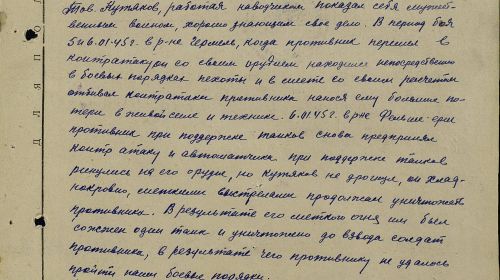 Тов. Кутяков, работая наводчиком показал себя мужест-
венным воином, хорошо знающим свое дело. В период боя
5 и 6.01.45 г. в р-не Гермель, когда противник перешел в
контратаку он со своим орудием находился непосредственно
в боевых порядках пехоты и вместе со своим расчетом
отбивал контратаки противника нанося ему большие по-
тери в живой силе и технике. 6.01.45 в р-не
противник при поддержке танков снова предпринял
контратаку и автоматчики при поддержке танков
ринулись на его орудие, но Кутяков не дрогнул, он хлад-
нокровно, меткими выстрелами продолжал уничтожать
противника. В результате его меткого огня им был
сожжен один танк и уничтожено до взвода солдат
противника, в результате чего противнику не удалось
пройти наши боевые порядки.
ДЛЯ П